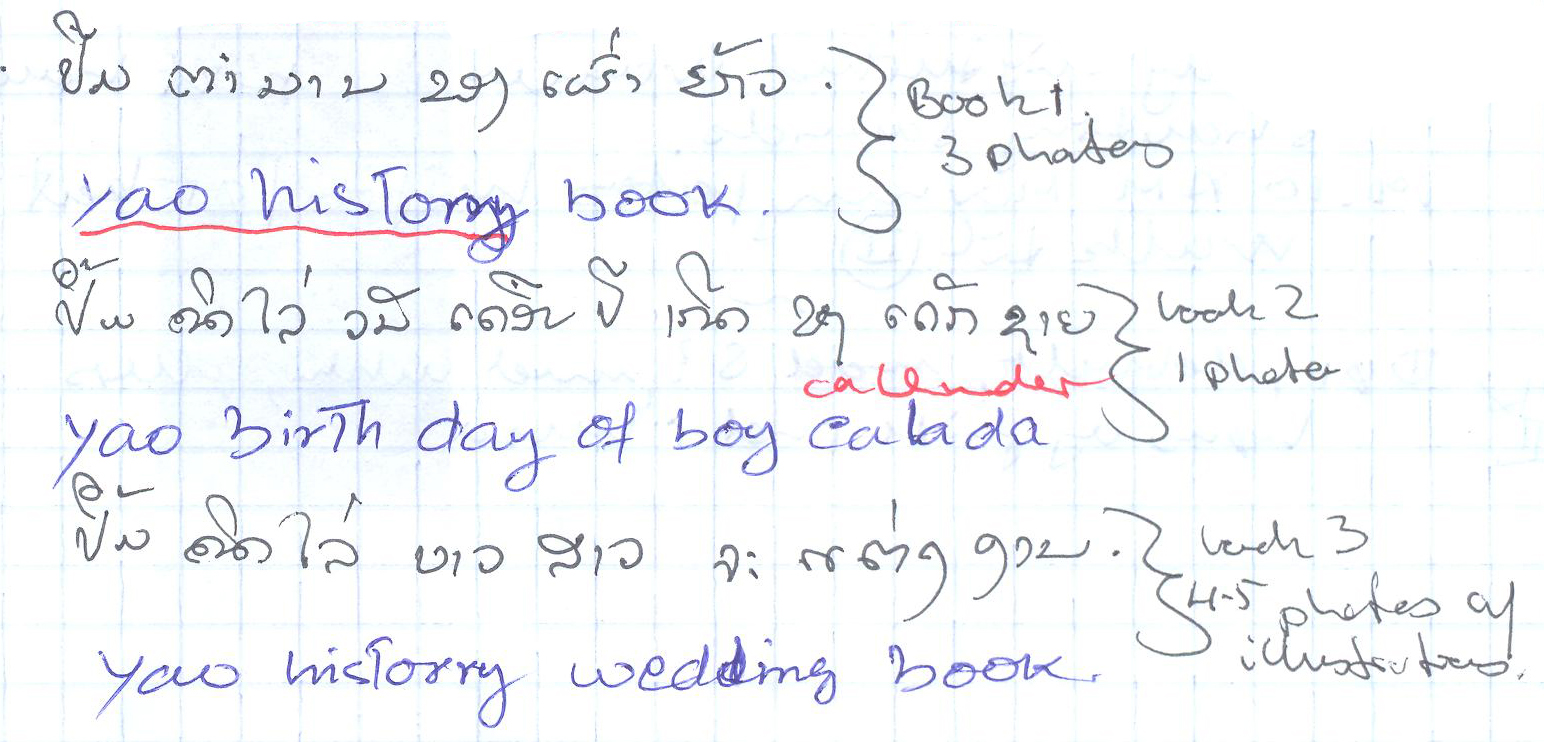 ປຶ້ມ ຕຳນານ ຂອງ ເຜົ່າ ຢ້າວ .
Book 1.
3 photos
Yao history book.
ປຶ້ມ ຄິດໄລ່ ວັນ ເດືອນ ປີ ເກີດ ຂອງ ເດັກ ຊາຍ
book 2
1 photo
calender
Yao Birth day of boy calada
ປຶ້ມ ຄິດໄລ່ ບ່າວ ສາວ ຈະ ແຕ່ງ ງານ .
book 3
4-5 photos of
illustrations.
Yao history wedding book.